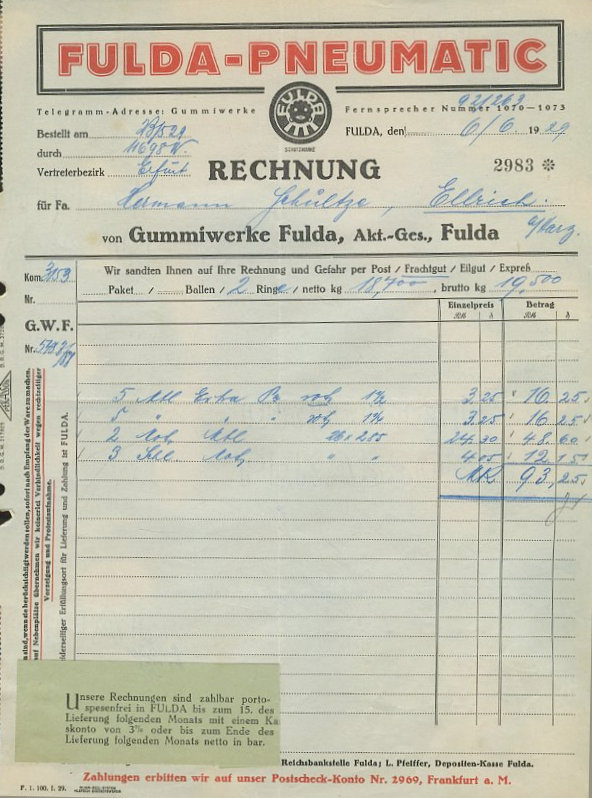 FULDA-PNEUMATIC
Telegramm-Adresse: Gummiwerke
FULDA
SCHUTZMARKE
921263
Fernsprecher Nummer 1070-1073
Bestellt am
FULDA, den 6/6. 1929
durch
Vertreterbezirk Erfurt
RECHNUNG
2983 *
für Fa. Hermann Schültze, Ellrich.
a/Harz.
von Gummiwerke Fulda, Akt.-Ges., Fulda
Kom. 3159
Nr.
Wir sandten Ihnen auf Ihre Rechnung und Gefahr per Post / Frachtgut / Eilgut / Expreß
Paket / Ballen / 2 Ringe / netto kg 18,400 brutto kg 19,500
Einzelpreis Betrag
RM ₰ RM ₰
G.W.F.
Nr.
5 3.25 16 25
5 " " 3.25 16 25
2 24.30 48 60
3 " " 4.05 12 15
MK 93,25
wenn sie berücksichtigt werden sollen, sofort nach Empfang der Ware zu machen.
auf Nebenplätze übernehmen wir keinerlei Verbindlichkeit wegen rechtzeitiger
Vorzeigung und Protestaufnahme.
beiderseitiger Erfüllungsort für Lieferung und Zahlung ist FULDA.
Unsere Rechnungen sind zahlbar porto-
spesenfrei in FULDA bis zum 15. des
Lieferung folgenden Monats mit einem Ka
skonto von 3% oder bis zum Ende des
Lieferung folgenden Monats netto in bar.
Reichsbankstelle Fulda; L. Pfeiffer, Depositen-Kasse Fulda.
Zahlungen erbitten wir auf unser Postscheck-Konto Nr. 2969, Frankfurt a. M.
F. 1. 100. 1. 29.